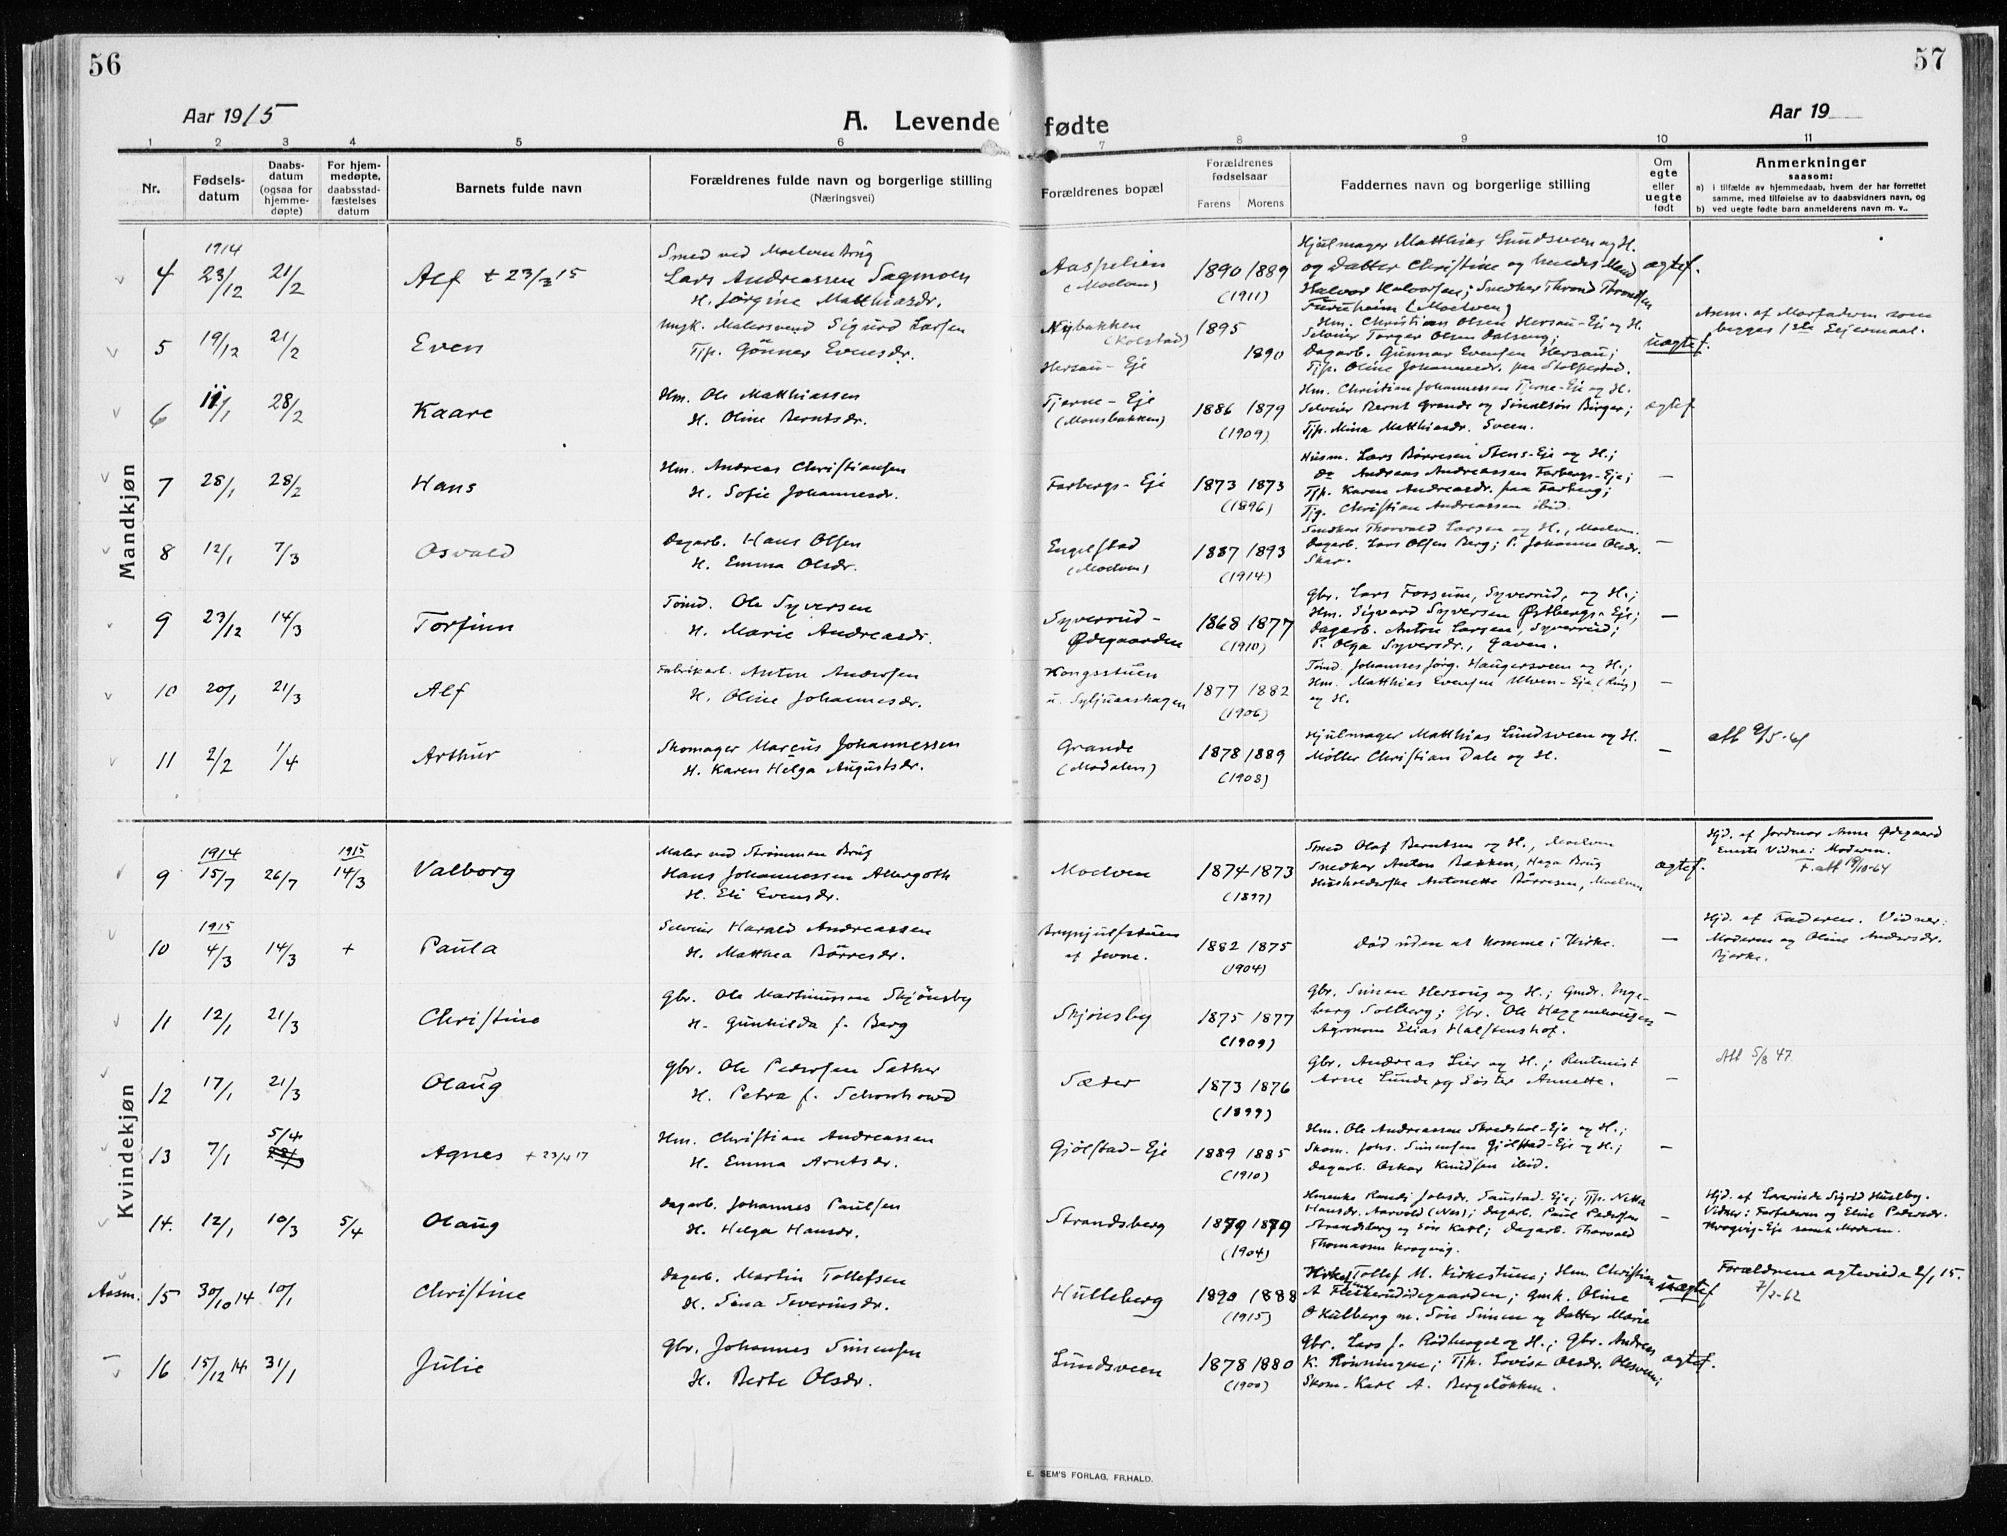 56
57
Aar 1915
A. Levende fødte
Aar 19
1 2 3 4 5 6 7 8 9 10 11
Nr.
Fødsels-
datum
Daabs-
datum
(ogsaa for
hjemme-
døpte)
For hjem-
medøpte,
daabsstad-
fæstelses
datum
Barnets fulde navn
Forældrenes fulde navn og borgerlige stilling
(Næringsvei)
Forældrenes bopæl
Forældrenes
fødselsaar
Farens Morens
Faddernes navn og borgerlige stilling
Om
egte
eller
uegte
født
Anmerkninger
saasom:
a) i tilfælde av hjemmedaab, hvem der har forrettet
samme, med tilføielse av to daabsvidners navn, og
b) ved uegte fødte barn anmelderens navn m. v..
Mandkjøn
1914
4 23/12 21/2 Alf + 23/3 15
Smed ved Moelven Brug
Lars Andreassen Sagmoen
H. Jørgine Matthiasdr.
Aaspelien
(Moelven)
1890 1889
(1911)
Hjulmager Matthias Lundsveen og H.
og Datter Christine og hendes Mand
Halvor Halvorsen; Snedker Thrond Throndsen
Furuheim (Moelven)
ægtef.
5 19/12 21/2 Even
Ungk. Malersvend Sigurd Larsen
Tjp. Gunner Evensdr.
Nybakken
(Kolstad)
Hersau-Eje
1895
1890
Hm. Christian Olsen Hersau-Eje og H.
Selveier Torger Olsen Dalseng;
Dagarb. Gunnar Evensen Hersau;
Tjp. Oline Johannesdr. paa Stolpestad.
uægtef.
Anm. af Morfaderen som
begges 1ste Leiermaal.
6 11/1 28/2 Kaare
Hm. Ole Matthiassen
H. Oline Berntsdr.
Tjerne-Eje
(Monsbakken)
1886 1879
(1909)
Hm. Christian Johannessen Tjerne-Eje og H.
Selveier Bernt Grande og Sønnesøn Birger;
Tjp. Mina Matthiasdr. Sveen.
ægtef
7 28/1 28/2 Hans
Hm. Andreas Christiansen
H. Sofie Johannesdr.
Farbergs-Eje
1873 1873
(1896)
Husm. Lars Børresen Stens-Eje og H.;
Do Andreas Andreassen Farbergs-Eje;
Tjp. Karen Andreasdr. paa Farberg;
Tjg. Christian Andreassen ibid.
—
8 12/1 7/3 Osvald
Dagarb. Hans Olsen
H. Emma Olsdr.
Engelstad
(Moelven)
1887 1893
(1914)
Snedker Thorvald Larsen og H., Moelven.
Dagarb. Lars Olsen Berg; P. Johanna Olsdr.
Skar.
—
9 23/12 14/3 Torfinn
Tømd. Ole Syversen
H. Marie Andreasdr.
Syverrud-
Ødegaarden
1868 1877
(1910)
Gbr. Lars Fossum, Syverrud, og H.;
Hm. Sigvard Syversen Østbergs-Eje;
Dagarb. Anton Larsen, Syverrud;
P. Olga Syversdr., Gaven.
—
10 20/1 21/3 Alf
Fabrikarb. Anton Andersen
H. Oline Johannesdr.
Kongsstuen
u. Syljuaashagen
1877 1882
(1906)
Tømd. Johannes Jørg. Haugersveen og H.;
Hm. Matthias Evensen Ulven-Eje (Ring)
og H.
—
11 2/2 1/4 Arthur
Skomager Marcus Johannessen
H. Karen Helga Augustsdr.
Grande
(Modalen)
1878 1889
(1908)
Hjulmager Matthias Lundsveen og H.
Møller Christian Dale og H.
—
att 9/5-61
Kvindekjøn
1914 1915
9 15/7 26/7 14/3 Valborg
Maler ved Strømmen Brug
Hans Johannessen Allergoth
H. Eli Evensdr.
Moelven
1874 1873
(1897)
Smed Olaf Berntsen og H., Moelven
Snedker Anton Bakken, Haga Brug
Husholderske Antonette Børresen, Moelven
ægtef.
Hjd. af Jordmor Anne Ødegaard
Eneste Vidne: Moderen.
F. att 19/10-64
1915
10 4/3 14/3 + Paula
Selveier Harald Andreassen
H. Matthea Børresdr.
Brynjulfstuen
af Jevne.
1882 1875
(1904)
Død uden at komme i Kirke.
—
Hjd. af Faderen. Vidner:
Moderen og Oline Andersdr.
Bjerke.
11 12/1 21/3 Christine
Gbr. Ole Martinussen Skjønsby
H. Gunhilda f. Berg
Skjønsby
1875 1877
(1909)
Gbr. Simen Hersoug og H.; Gmdr. Inge-
borg Solberg; Gbr. Ole Heggenhougen
Agronom Elias Halstenshof.
—
12 17/1 21/3 Olaug
Gbr. Ole Pedersen Sæther
H. Petra f. Schonhowd
Sæter
1873 1876
(1899)
Gbr. Andreas Lier og H.; Rentenist
Arne Lunde og Søster Annette.
—
Att 5/8 47
13 7/1 5/4 28/3 Agnes + 23/4 17
Hm. Christian Andreassen
H. Emma Arntsdr.
Gjølstad-Eje
1889 1885
(1910)
Hm. Ole Andreassen Skredshol-Eje og H.;
Skom. Johs. Simensen Gjølstad-Eje og H.;
Dagarb. Oskar Knudsen ibid.
—
14. 12/1 10/3 5/4 Olaug
Dagarb. Johannes Paulsen
H. Helga Hansdr.
Strandsberg
1879 1879
(1904)
Hmenke Randi Johsdr. Saustad-Eje; Tjp. Netta
Hansdr. Aarvold (Nes); Dagarb. Paul Pedersen
Strandsberg og Søn Karl; Dagarb. Thorvald
Thomassen Krogvig.
—
Hjd. af Lærerinde Sigrid Huselby.
Vidner: Farfaderen og Eline Pedersdr.
Krogvig-Eje samt Moderen.
Aasm. 15 30/10 14 10/1 Christine
Dagarb. Martin Tollefsen
H. Sina Severinsdr.
Hulleberg
1890 1888
(1915)
Tollef M. Kirkestuen; Hm. Christian
A Flekerudødegaarden; Gmk. Oline
O Kulberg m. Søn Simen og Datter Marie
uægtef
Forældrene ægteviede 2/1 15.
7/2-62
— 16 15/12 14 31/1 Julie
Gbr. Johannes Simensen
H. Berte Olsdr.
Lundsveen
1878 1880
(1900)
Gbr. Lars J. Rødhagel og H.; Gbr. Andreas
K. Rønningen; Tjp. Lovise Olsdr. Olesveen;
Skom. Karl A. Bergeløkken.
ægtef.
E. SEM'S FORLAG, FR.HALD.